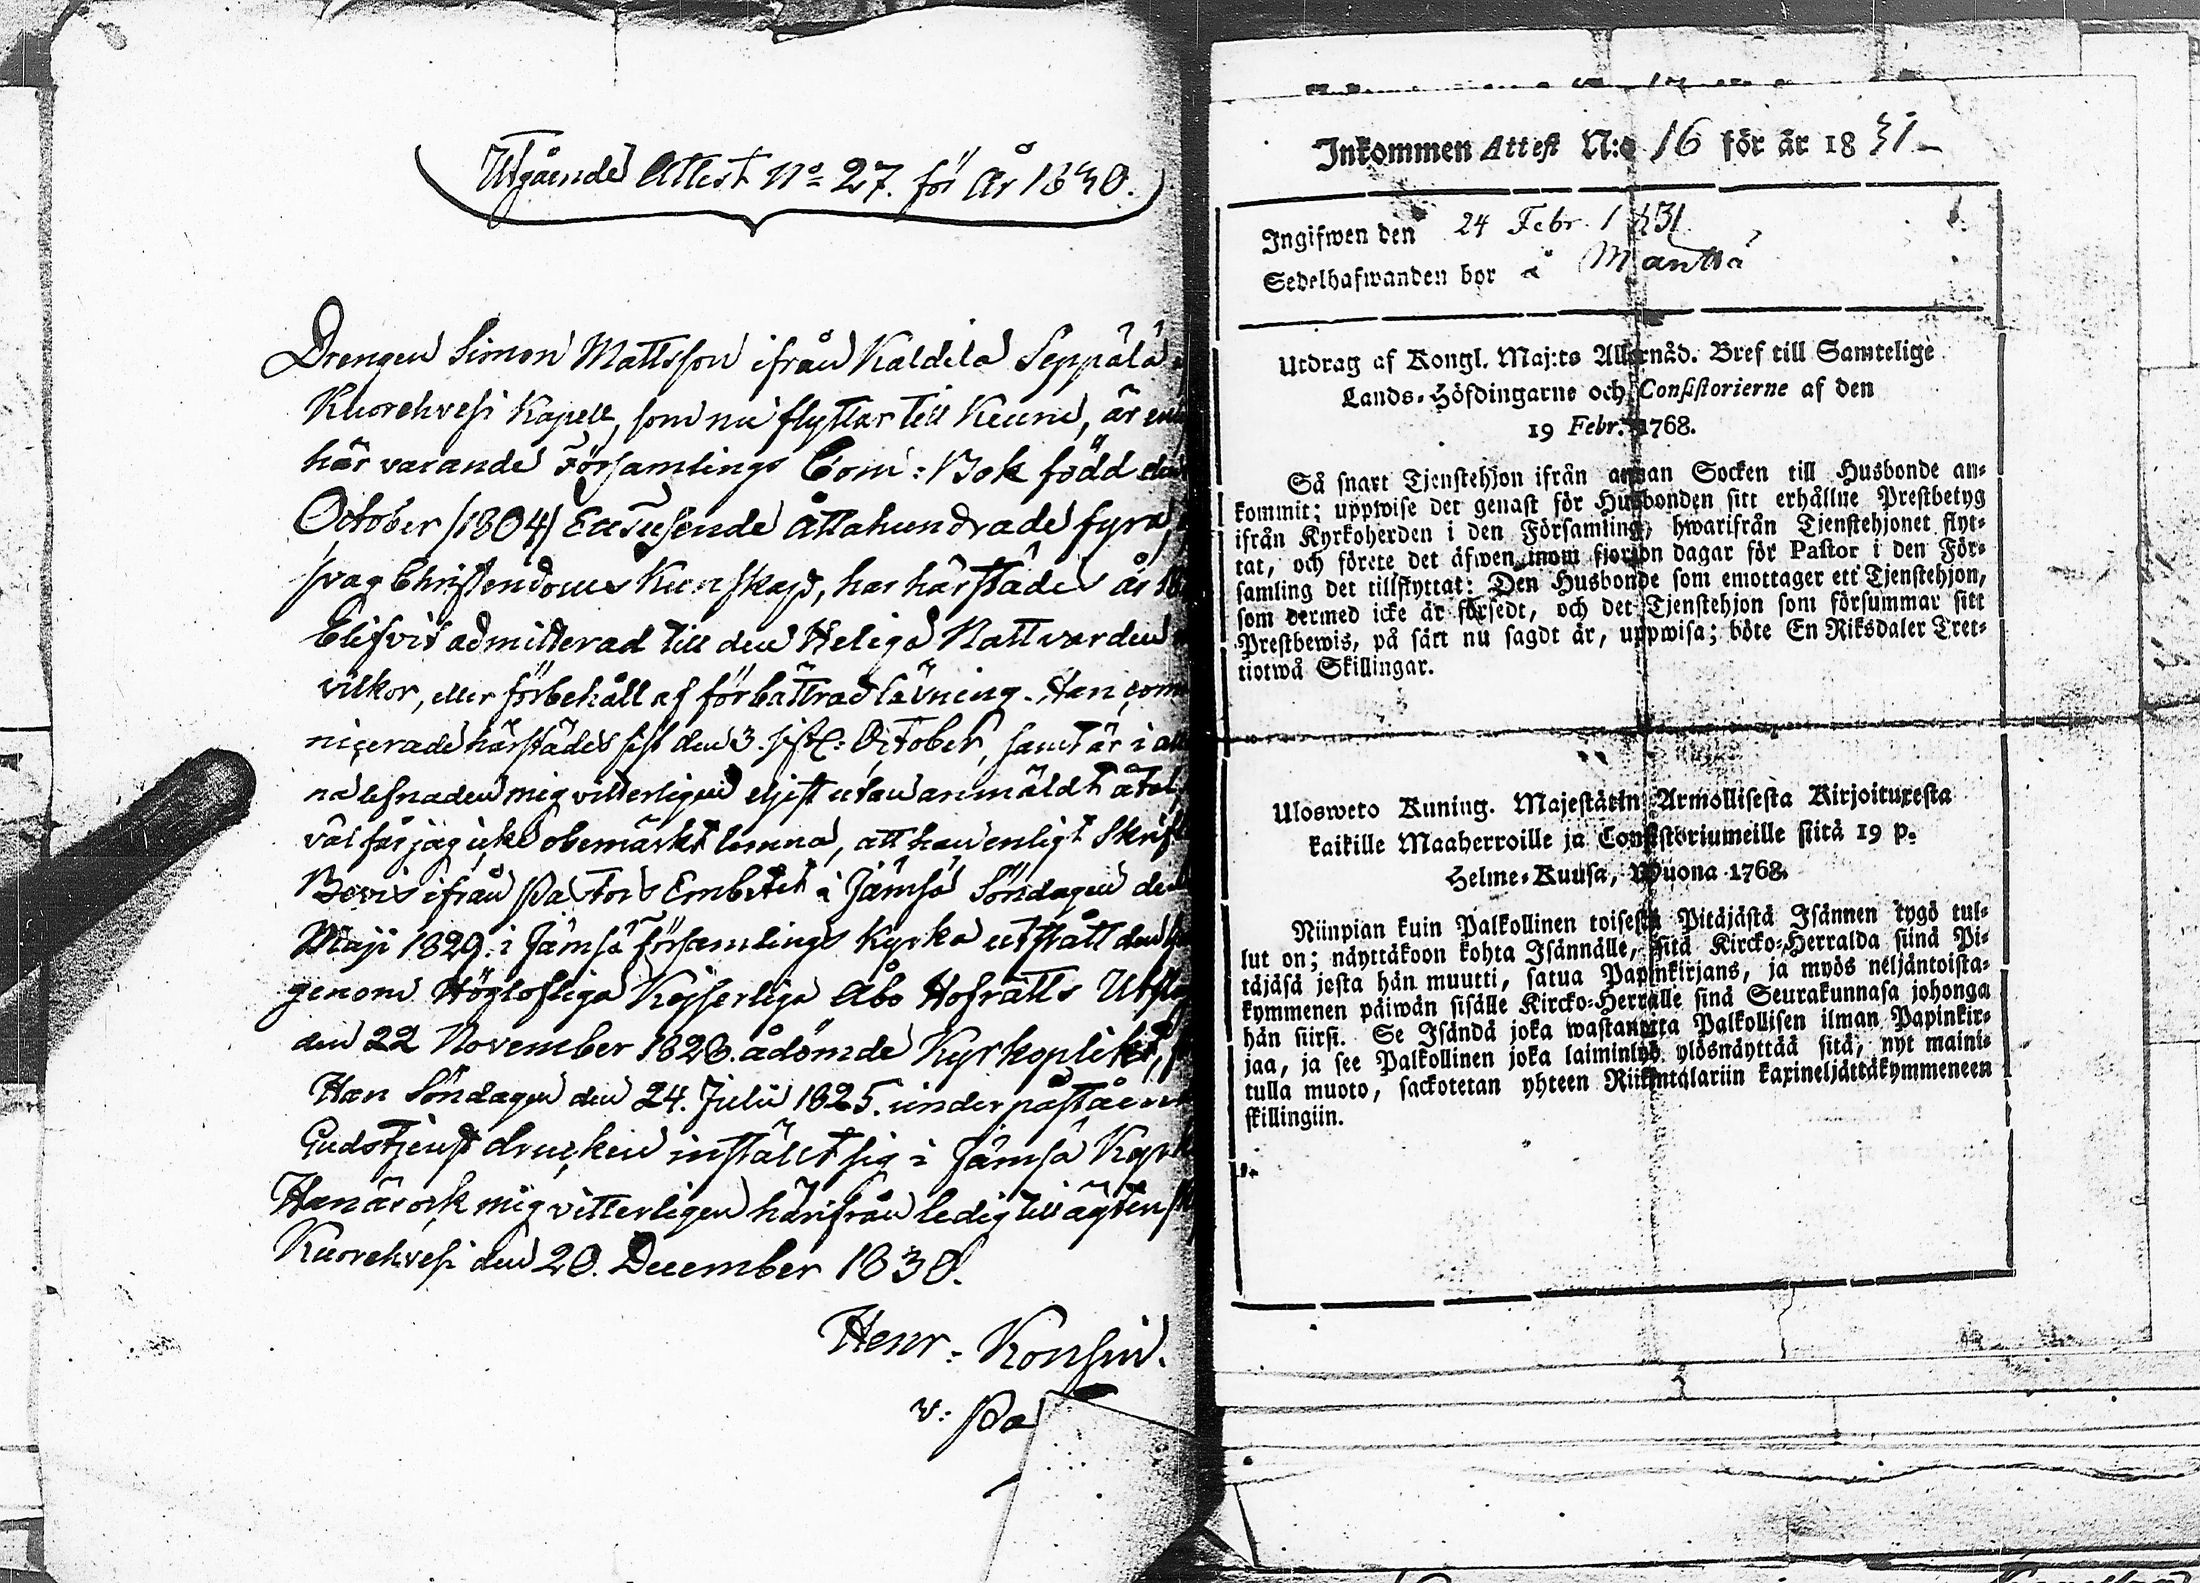 Utgående Attest No 27. för År 1830.
Drengen Simon Mattsson ifrån Kaldila Seppälä
Kuorehvesi Kapell, som nu flyttar till Keuru, är
här varande Församlings Com: Bok född den
October /1804/ Ettusende Åttahundrade fyra,
svag Christendoms Kunskap, har härstädes år
blifvit admitterad till den Heliga Nattvarden
vilkor, eller förbehåll af förbättrad läsning. Han com
nicerade härstädes sist den 3. sistl: October, samt är i
na lefnaden mig vitterligen ejest utan anmäldt åtal,
väl får jag icke obemärkt lemna, att han enligt Skrift
Bevis ifrån Pastors Embetet i Jämsä Söndagen den
Maji 1829. i Jämsä församlings Kyrka utstått den
genom Höglofliga Kejserliga Åbo Hofrätts Utsla
den 22 November 1828. ådömde Kyrkoplikt,
Han Söndagen den 24. Julii 1825. under påstående
Gudstjenst drucken instäldt sig i Jämsä Kyrk
Han är ock mig vitterligen härifrån ledig till ägtensk
Kuorehvesi den 20. December 1830.
Henr: Konsin.
v: Pa
Inkommen Attest N:o 16 för år 1831
Ingifwen den 24 Febr. 1831
Sedelhafwanden bor å Mänttä
Utdrag af Kongl. Maj:ts Allernåd. Bref till Samtelige
Lands-Höfdingarne och Consistorierne af den
19 Febr. 1768.
Så snart Tjenstehjon ifrån annan Socken till Husbonde an-
kommit; uppwise det genast för Husbonden sitt erhållne Prestbetyg
ifrån Kyrkoherden i den Församling, hwarifrån Tjenstehjonet flyt-
tat, och förete det äfwen inom fjorton dagar för Pastor i den För-
samling det tillflyttat: Den Husbonde som emottager ett Tjenstehjon,
som dermed icke är försedt, och det Tjenstehjon som försummar sitt
Prestbewis, på sätt nu sagdt är, uppwisa; böte En Riksdaler Tret-
tiotwå Skillingar.
Ulosweto Kuning. Majestätin Armollisesta Kirjoituxesta
kaikille Maaherroille ja Consistoriumeille siitä 19 p.
Helme-Kuusa, Wuona 1768.
Niinpian kuin Palkollinen toisesta Pitäjästä Isännen tygö tul-
lut on; näyttäkoon kohta Isännälle, sitä Kircko-Herralda siinä Pi-
täjäsä josta hän muutti, satua Papinkirjans, ja myös neljäntoista-
kymmenen päiwän sisälle Kircko-Herralle siinä Seurakunnasa johonga
hän siirsi. Se Isändä joka wastanotta Palkollisen ilman Papinkir-
jaa, ja see Palkollinen joka laiminlyö ylösnäyttää sitä, nyt maini-
tulla muoto, sackotetan yhteen Riikintalariin kaxineljättäkymmeneen
skillingiin.